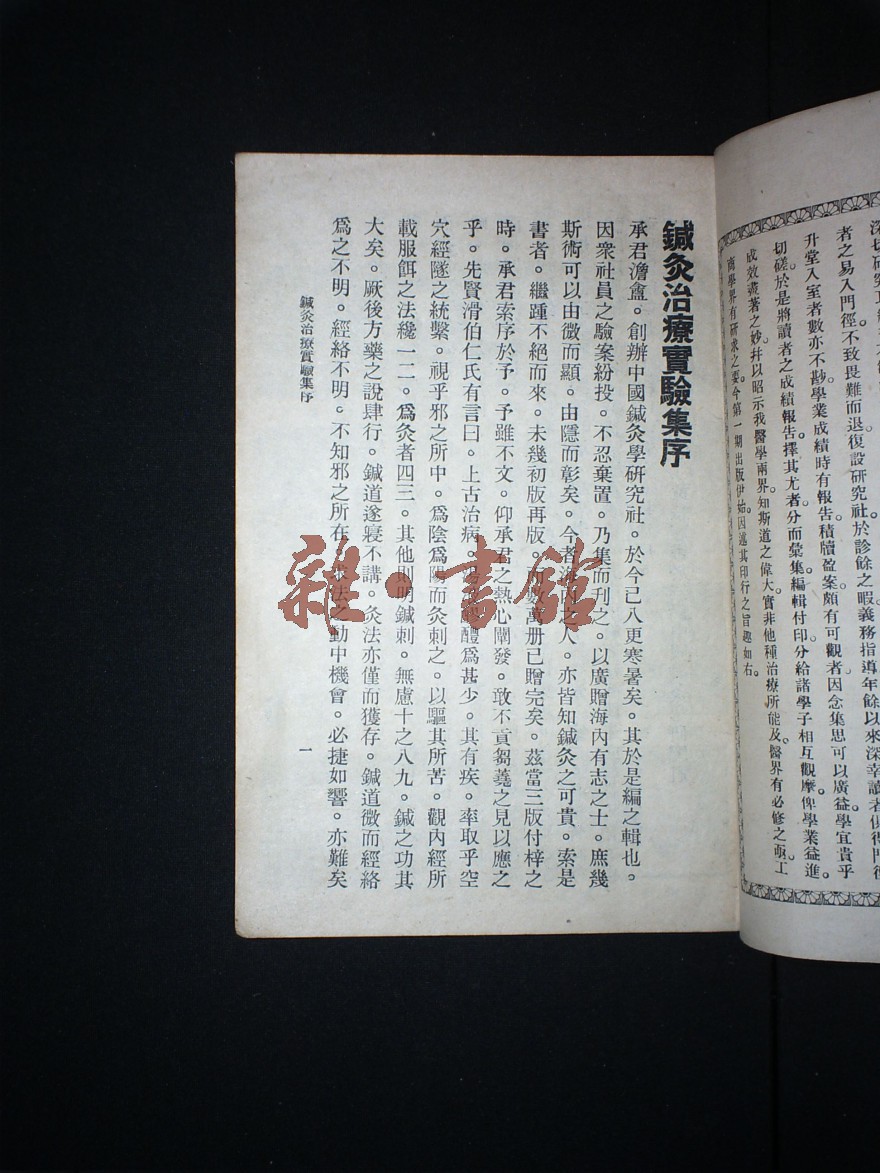 深切研究
者之易入門徑不致畏難而退復設研究社於診餘之暇義務指導年餘以來深幸讀者俱得門徑
升堂入室者數亦不尠學業成績時有報告積牘盈案頗有可觀者因念集思可以廣益學宜貴乎
切磋於是將讀者之成績報告擇其尤者分而彙集編輯付印分給諸學子相互觀摩俾學業益進。
成效盡著之妙幷以昭示我醫學兩界知斯道之偉大實非他種治療所能及醫界有必修之
商學界有研求之要今第一期出版伊始因述其印行之旨趣如右。
鍼灸治療實驗集序
承君澹盦。創辦中國鍼灸學研究社。於今已八更寒暑矣。其於是編之輯也。
因衆社員之驗案紛投。不忍棄置。乃集而刋之。以廣贈海內有志之士。庶幾
斯術可以由微而顯。由隱而彰矣。今者海內之人。亦皆知鍼灸之可貴。索是
書者。繼踵不絕而來。未幾初版再版。而數萬册已贈完矣。茲當三版付梓之
時。承君索序於予。予雖不文。仰承君之熱心闡發。敢不貢芻蕘之見以應之
乎。先賢滑伯仁氏有言曰。上古治病。湯液醪醴爲甚少。其有疾。率取乎空
穴經隧之統繫。視乎邪之所中。爲陰爲陽而灸刺之。以驅其所苦。觀內經所
載服餌之法纔一二。爲灸者四三。其他則明鍼刺。無慮十之八九。鍼之功其
大矣。厥後方藥之說肆行。鍼道遂寢不講。灸法亦僅而獲存。鍼道微而經絡
爲之不明。經絡不明。不知邪之所在。求法之動中機會。必捷如響。亦難矣
鍼灸治療實驗集序
一
雜·書館